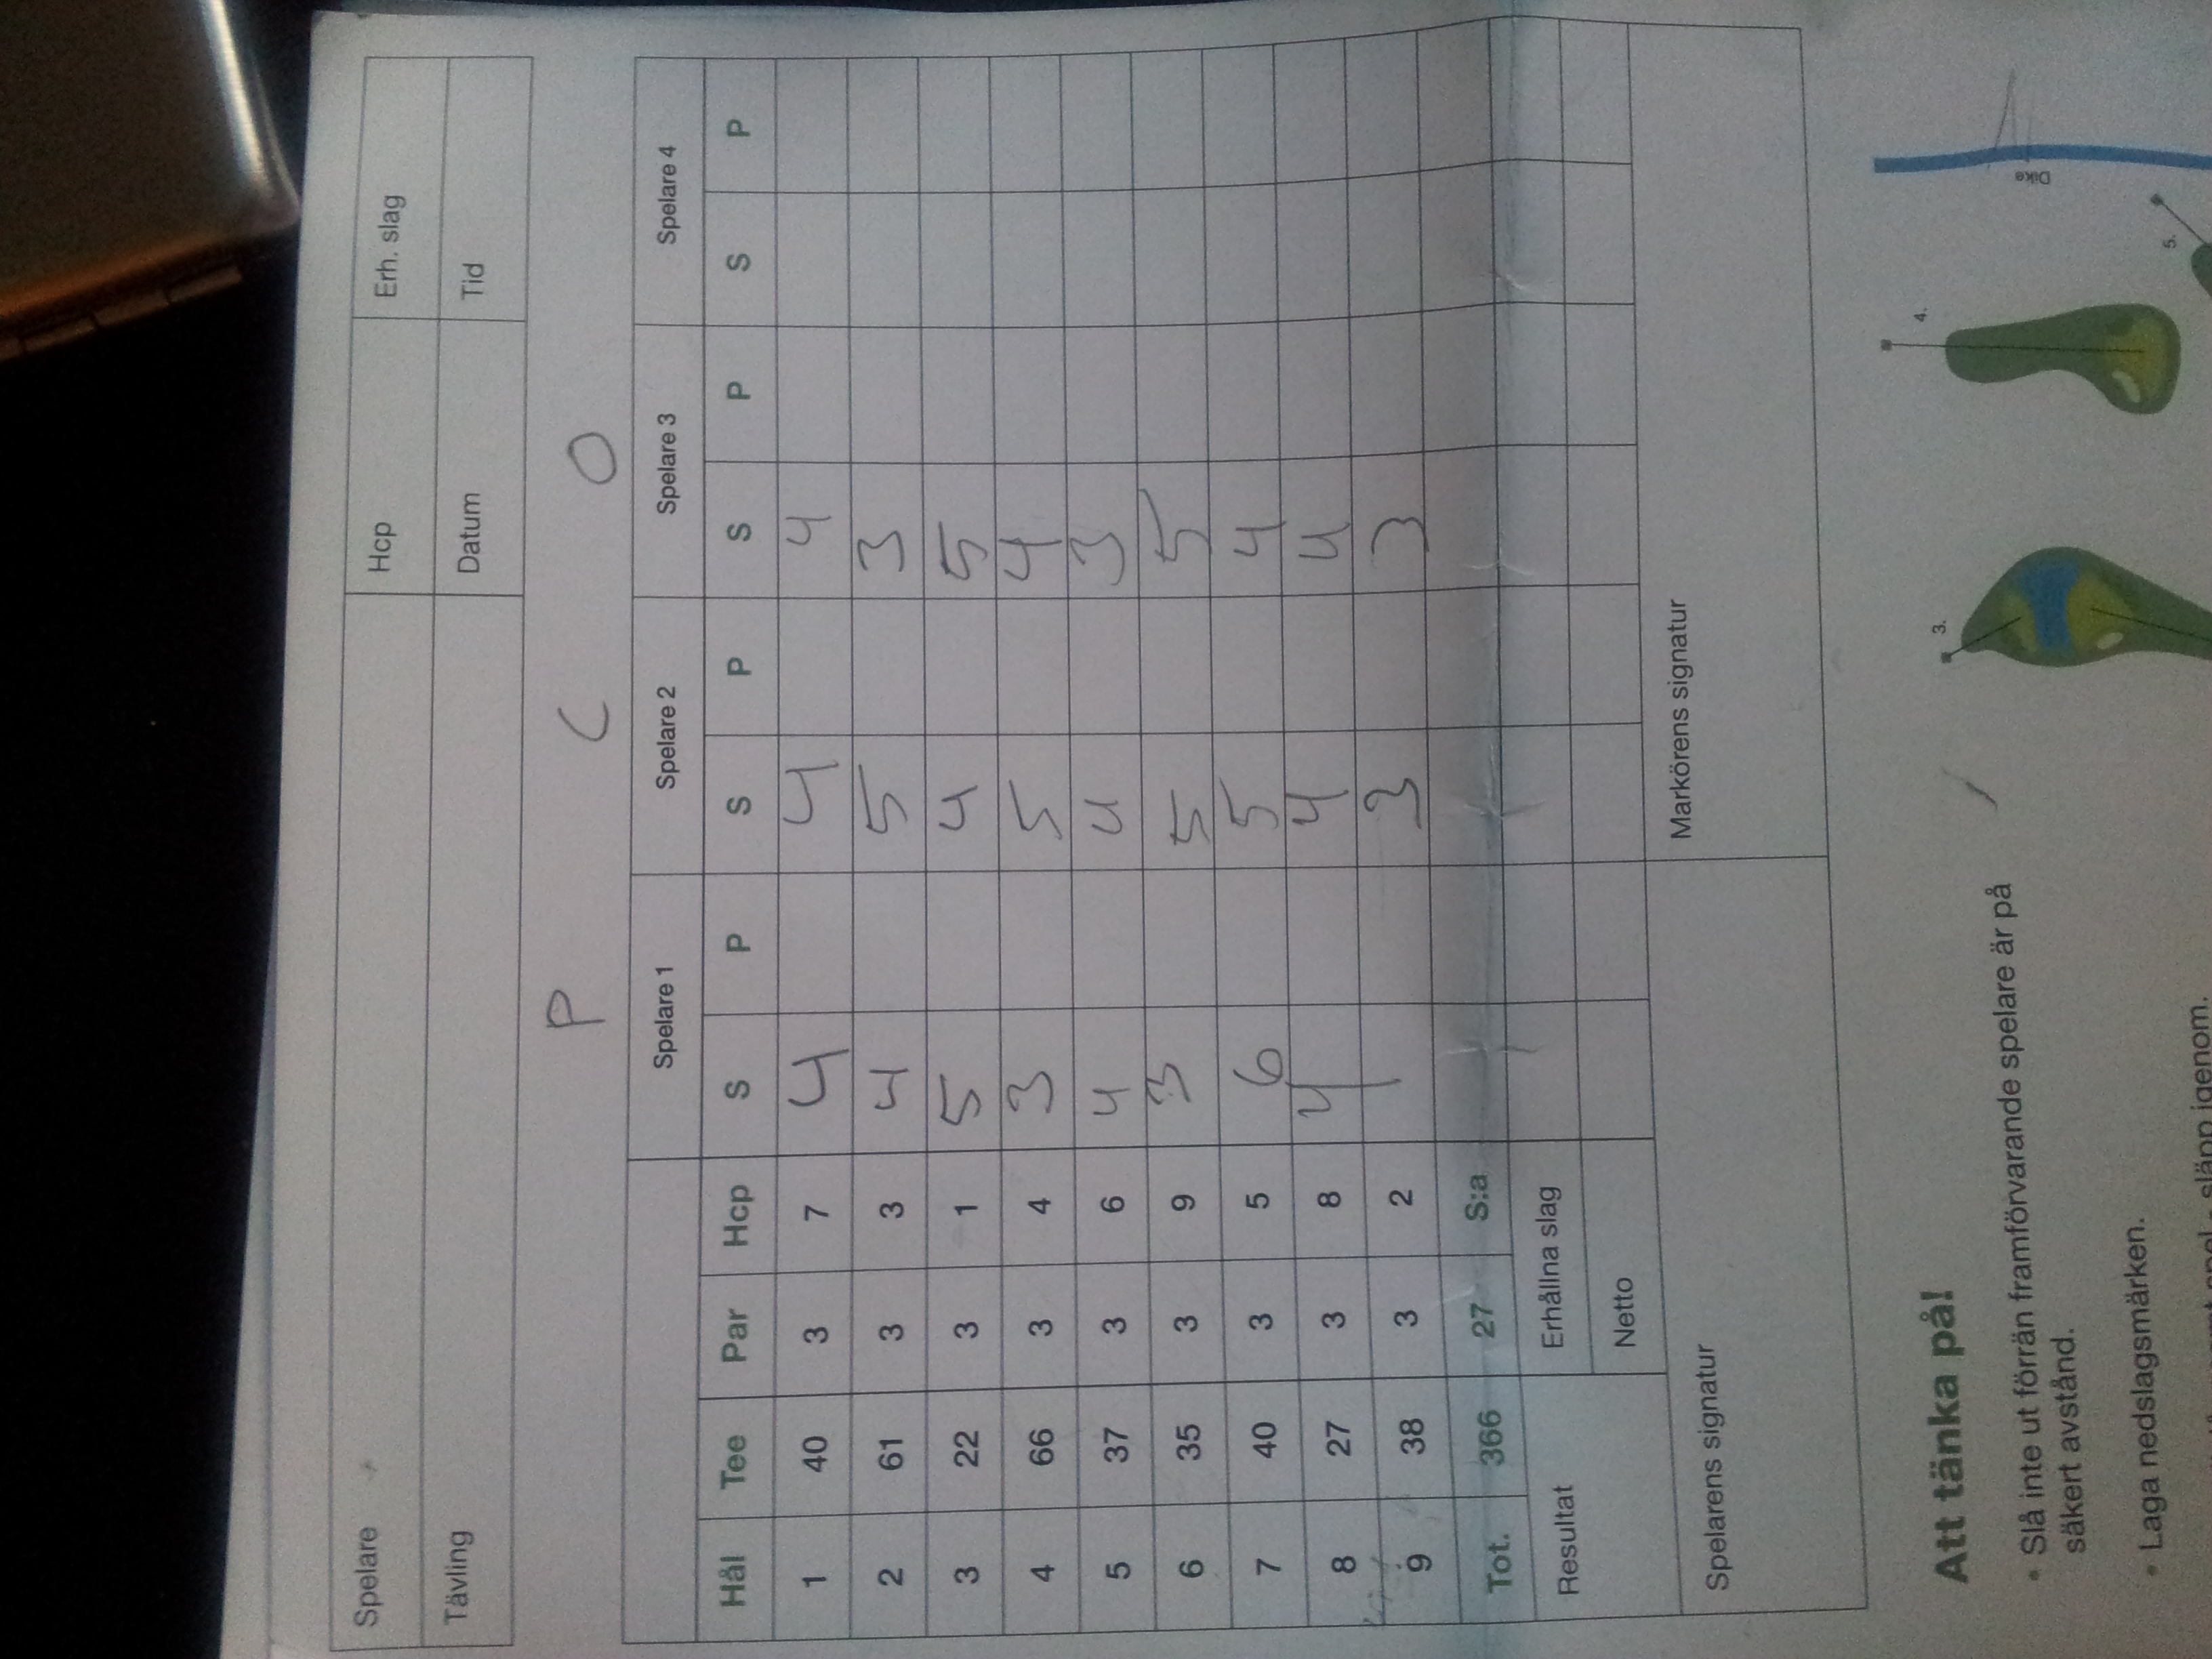 Spelare Hcp Erh. slag
Tävling Datum Tid
P C O
Spelare 1 Spelare 2 Spelare 3 Spelare 4
Hål Tee Par Hcp S P S P S P S P
1 40 3 7 4 4 4
2 61 3 3 4 5 3
3 22 3 1 5 4 5
4 66 3 4 3 5 4
5 37 3 6 4 4 3
6 35 3 9 3 5 5
7 40 3 5 6 5 4
8 27 3 8 4 4 4
9 38 3 2 1 3 3
Tot. 366 27 S:a
Resultat Erhållna slag
Netto
Spelarens signatur Markörens signatur
Att tänka på!
• Slå inte ut förrän framförvarande spelare är på
säkert avstånd.
• Laga nedslagsmärken.
släpp igenom.
3.
4.
5.
Dike